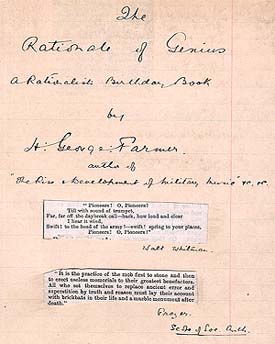 The
Rationale of Genius
A Rationalist Birthday Book
by
H. George Farmer.
author of
"The Rise & Development of Military Music" &c, &c.
"Pioneers! O, Pioneers!
Till with sound of trumpet,
Far, far off the daybreak call—hark, how loud and clear
I hear it wind,
Swift! to the head of the army!—swift! spring to your places,
Pioneers! O, Pioneers!"
Walt Whitman
"It is the practice of the mob first to stone and then
to erect useless memorials to their greatest benefactors.
All who set themselves to replace ancient error and
superstition by truth and reason must lay their account
with brickbats in their life and a marble monument after
death."
Frazer.
Scope of Soc. Anth.